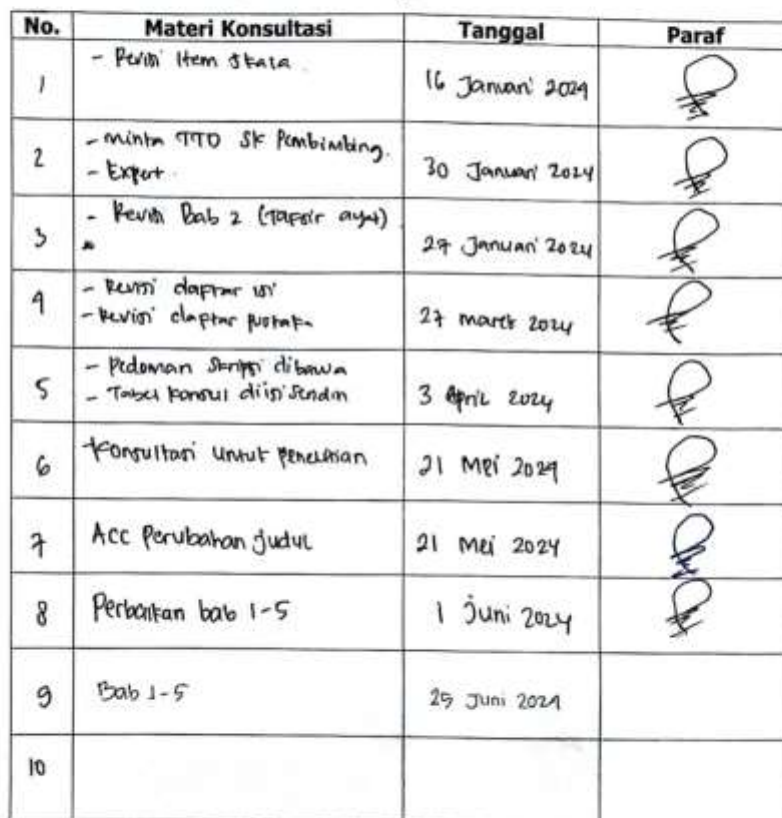 No. Materi Konsultasi Tanggal Paraf
1 - Revisi Item Skala 16 Januari 2024
2 - minta TTD SK Pembimbing.
- Expert. 30 Januari 2024
3 - Revisi Bab 2 (Tafsir ayat) 27 Januari 2024
4 - Revisi daftar isi
- Revisi daftar pustaka 27 maret 2024
5 - Pedoman Skripsi dibawa
- Tabel konsul diisi Sendiri 3 April 2024
6 Konsultasi untuk penelitian 21 Mei 2024
7 Acc Perubahan judul 21 Mei 2024
8 Perbaikan bab 1-5 1 Juni 2024
9 Bab 1-5 25 Juni 2024
10